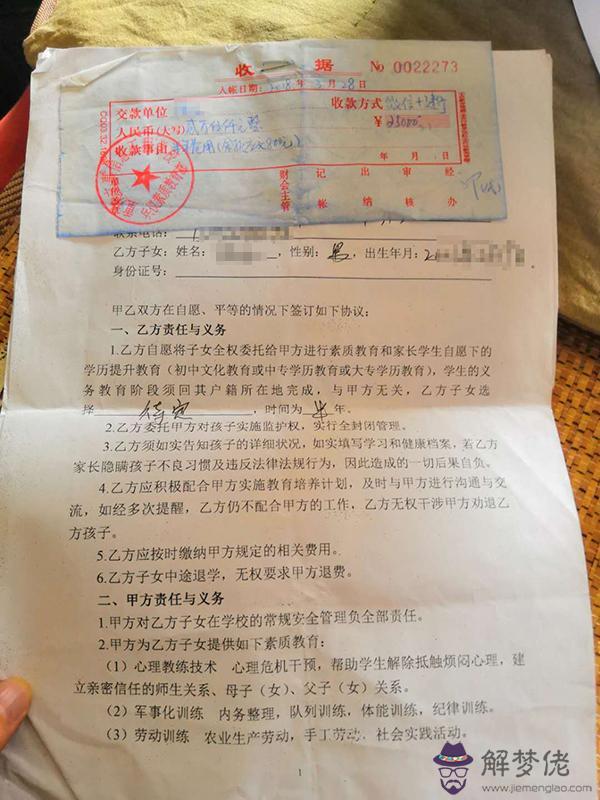 收 据 No 0022273
入帐日期：2018年3月28日
交款单位 收款方式 微信+银行
人民币(大写) 贰万伍仟元整 ￥25000
收款事由
年 月 日
财会主管 记帐 出纳 审核 经办
联系电话：
乙方子女：姓名： ，性别：男，出生年月：2
身份证号：
甲乙双方在自愿、平等的情况下签订如下协议：
一、乙方责任与义务
1.乙方自愿将子女全权委托给甲方进行素质教育和家长学生自愿下的
学历提升教育（初中文化教育或中专学历教育或大专学历教育），学生的义
务教育阶段须回其户籍所在地完成，与甲方无关，乙方子女选
择 待定 ，时间为 半 年。
2.乙方委托甲方对孩子实施监护权，实行全封闭管理。
3.乙方须如实告知孩子的详细状况，如实填写学习和健康档案，若乙方
家长隐瞒孩子不良习惯及违反法律法规行为，因此造成的一切后果自负。
4.乙方应积极配合甲方实施教育培养计划，及时与甲方进行沟通与交
流，如经多次提醒，乙方仍不配合甲方的工作，乙方无权干涉甲方劝退乙
方孩子。
5.乙方应按时缴纳甲方规定的相关费用。
6.乙方子女中途退学，无权要求甲方退费。
二、甲方责任与义务
1.甲方对乙方子女在学校的常规安全管理负全部责任。
2.甲方为乙方子女提供如下素质教育：
（1）心理教练技术 心理危机干预，帮助学生解除抵触烦闷心理，建
立亲密信任的师生关系、母子（女）、父子（女）关系。
（2）军事化训练 内务整理，队列训练，体能训练，纪律训练。
（3）劳动训练 农业生产劳动，手工劳动、社会实践活动。
1
解梦佬
www.jiemenglao.com